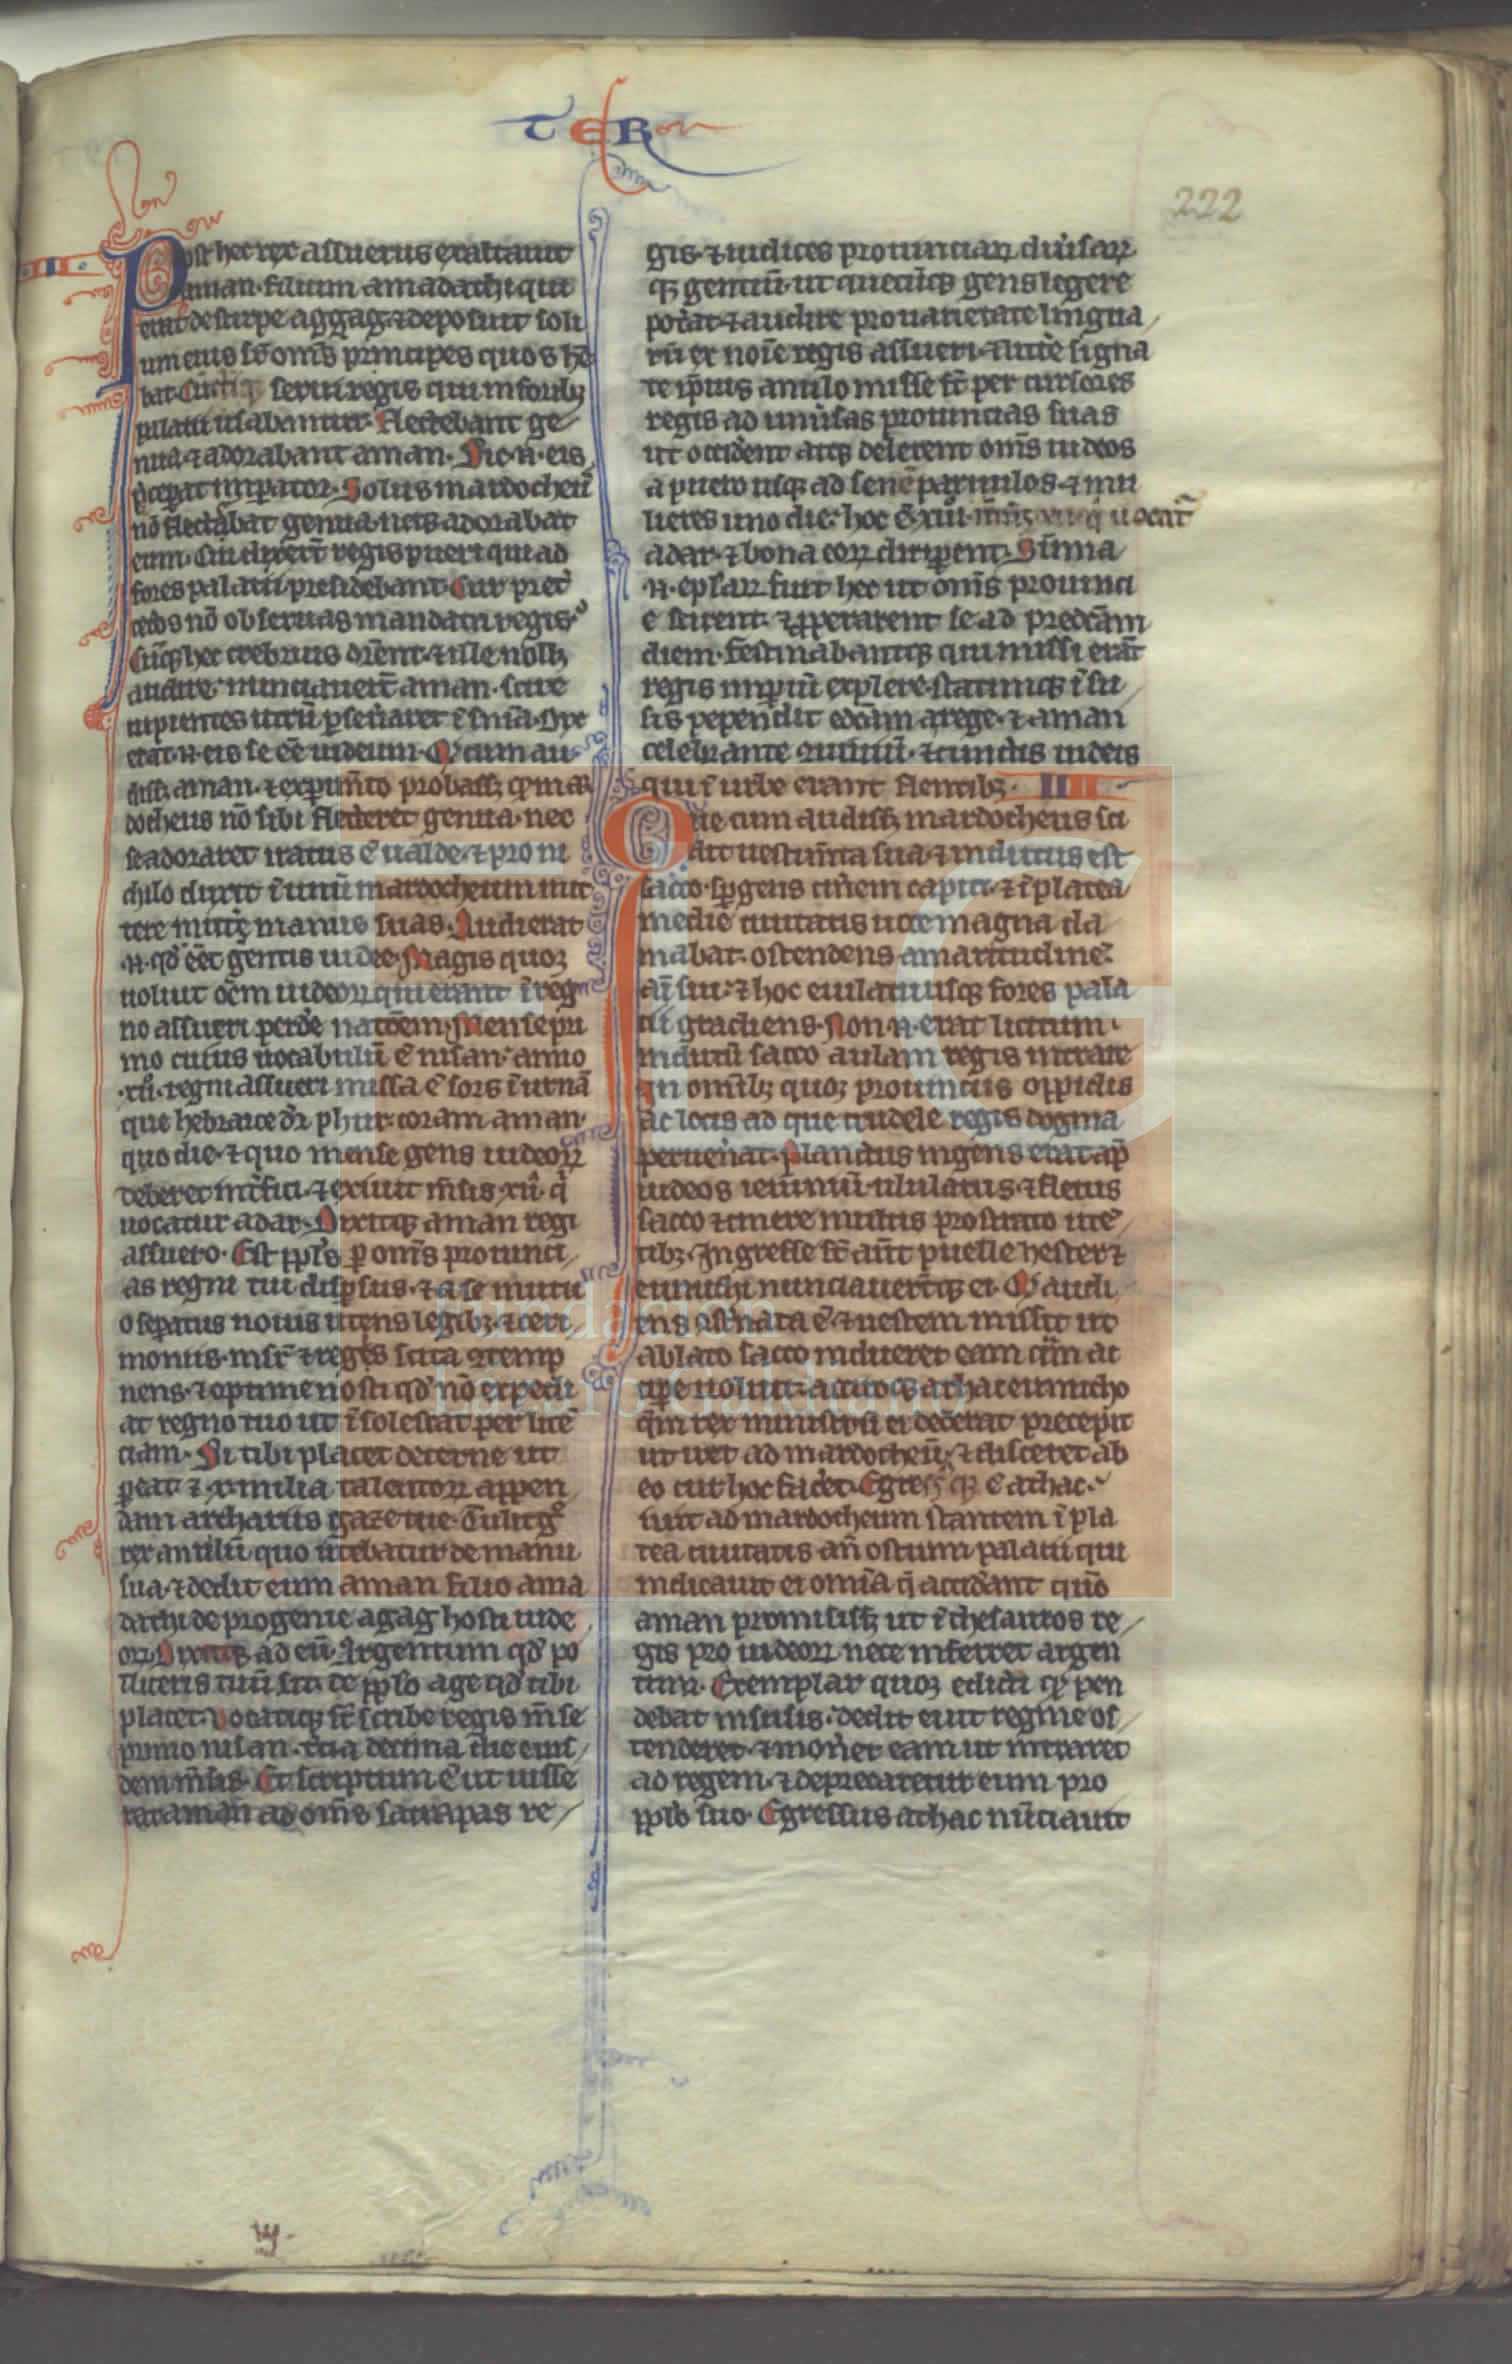 TER
222
III
Post hec rex assuerus exaltauit
aman filium amadathi qui
erat de stirpe aggag ⁊ deposuit soli
um eius sr̄ om̄s principes quos hē
bat. Cuctiq serui regis qui in foribꝫ
palatii uersabantur. flectebant ge
nua ⁊ adorabant aman. Sic .n. eis
p̄cepat impator. Solus mardocheus
nō flectebat genua necꝫ adorabat
eum. Cui dixerūt regis pueri qui ad
fores palatii presidebant. Cur pret̄
ceteros nō obseruas mandatū regis.
Cūqꝫ hec crebrius dicent ⁊ ille nollꝫ
audire nunciauerūt aman. scire
cupientes utrū pseuaret ī sn̄ia. Dixe
erat .n. eis se eē iudeum. Qd cum au
dissꝫ aman ⁊ experim̄to probassꝫ qd mar
docheus nō sibi flecteret genua. nec
se adoraret iratus ē ualde. ⁊ pro ni
chilo duxit ī unū mardocheum mit
tere mittē manus suas. Audierat
.n. qd eēt gentis iudee. Magis quoqꝫ
uoluit oēm iudeoꝝ qui erant ī reg
no assueri perdē natōem. Mense pri
mo cuius uocabulū ē nisan. anno
.xii. regni assueri missa ē sors ī urnā
que hebraice dr̄ phur. coram aman.
quo die ⁊ quo mense gens iudeoꝝ
deberet intfici. ⁊ exiuit m̄sis .xii. qi
uocatur adar. Dixitqꝫ aman regi
assuero. Est ppl̄s p om̄s prouinci
as regni tui dispsus. ⁊ a se mutu
o sepatus nouis utens legibꝫ ⁊ ceri
moniis. insr̄ ⁊ regis scita ꝯtemp
nens. ⁊ optime nosti qd nō expedi
at regno tuo ut īsolescat per licē
ciam. Si tibi placet decerne ut
peat ⁊ .x. milia talentoꝝ appen
dam archariis gaze tue. Tulit gͦ
rex anulū quo utebatur de manu
sua. ⁊ dedit eum aman filio ama
dathi de progenie agag hosti iude
oꝝ. Dixitqꝫ ad eū. Argentum qd po
lliceris tuū sit. de ppl̄o age qd tibi
placet. Uocatiqꝫ st̄ scribe regis m̄se
primo nisan. tcia decima die eius
dem m̄sis. Et scriptum ē ut iusse
rat aman ad om̄s satrapas re
gis. ⁊ iudices prouinciaꝝ diuersaꝝ
qꝫ gentiū. ut quecūqꝫ gens legere
poterat ⁊ audire pro uarietate lingua
rū ex noīe regis assueri. ⁊ litē signa
te ip̄ius anulo misse st̄ per cursores
regis ad uniuersas prouincias suas
ut occident atqꝫ delerent om̄s iudeos
a puero usqꝫ ad senē paruulos. ⁊ mu
lieres uno die. hoc ē .xiii. m̄sis .xii. qi uocat̄
adar. ⁊ bona eoꝝ diripent. Sūma
.n. epl̄aꝝ fuit hec ut om̄s prouinci
e scirent. ⁊ pperarent se ad predc̄am
diem. Festinabantqꝫ qui missi erāt
regis impiū explere. statimqꝫ ī su
sis pependit edc̄m a rege. ⁊ aman
celebrante ꝯuiuiū. ⁊ cunctis iudeis
qui ī urbe erant flentibꝫ. IIII
Que cum audissꝫ mardocheus sci
dit uestim̄ta sua ⁊ indutus est
sacco. spgens cinerem capiti. ⁊ ī platea
medie ciuitatis uoce magna cla
mabat. ostendens amaritudinē
an̄i sui. ⁊ hoc eiulatu usqꝫ fores pala
tii gradiens. Non .n. erat licitum
indutū sacco aulam regis intrare
In omībꝫ quoqꝫ prouinciis oppidis
ac locis ad que crudele regis dogma
peruenat. Planctus ingens erat ap̄
iudeos ieiuniū ululatus ⁊ fletus
sacco ⁊ cinere multis pro strato utē
tibꝫ. Ingresse st̄ aūt puelle hester ⁊
eunuchi nunciauerūtqꝫ ei. Qd audi
ens ꝯst̄nata ē ⁊ uestem misit ut
ablato sacco indueret eam quā ac
cipe noluit. accitoqꝫ athac eunucho
quē rex ministrū ei decerat precepit
ut iret ad mardocheū. ⁊ disceret ab
eo cur hoc facēt. Egressꝰqꝫ ē athac.
iuit ad mardocheum stantem ī pla
tea ciuitatis an̄ ostium palatii qui
indicauit ei omīa q̄ accidāt quō
aman promisissꝫ ut ī thesauros re
gis pro iudeoꝝ nece inferret argen
tum. Exemplar quoqꝫ edicti qd pen
debat in susis. dedit ei ut regine os
tenderet. ⁊ monēt eam ut intraret
ad regem. ⁊ deprecaretur eum pro
ppl̄o suo. Egressus athac nūciauit
Fundación
Lázaro Galdiano